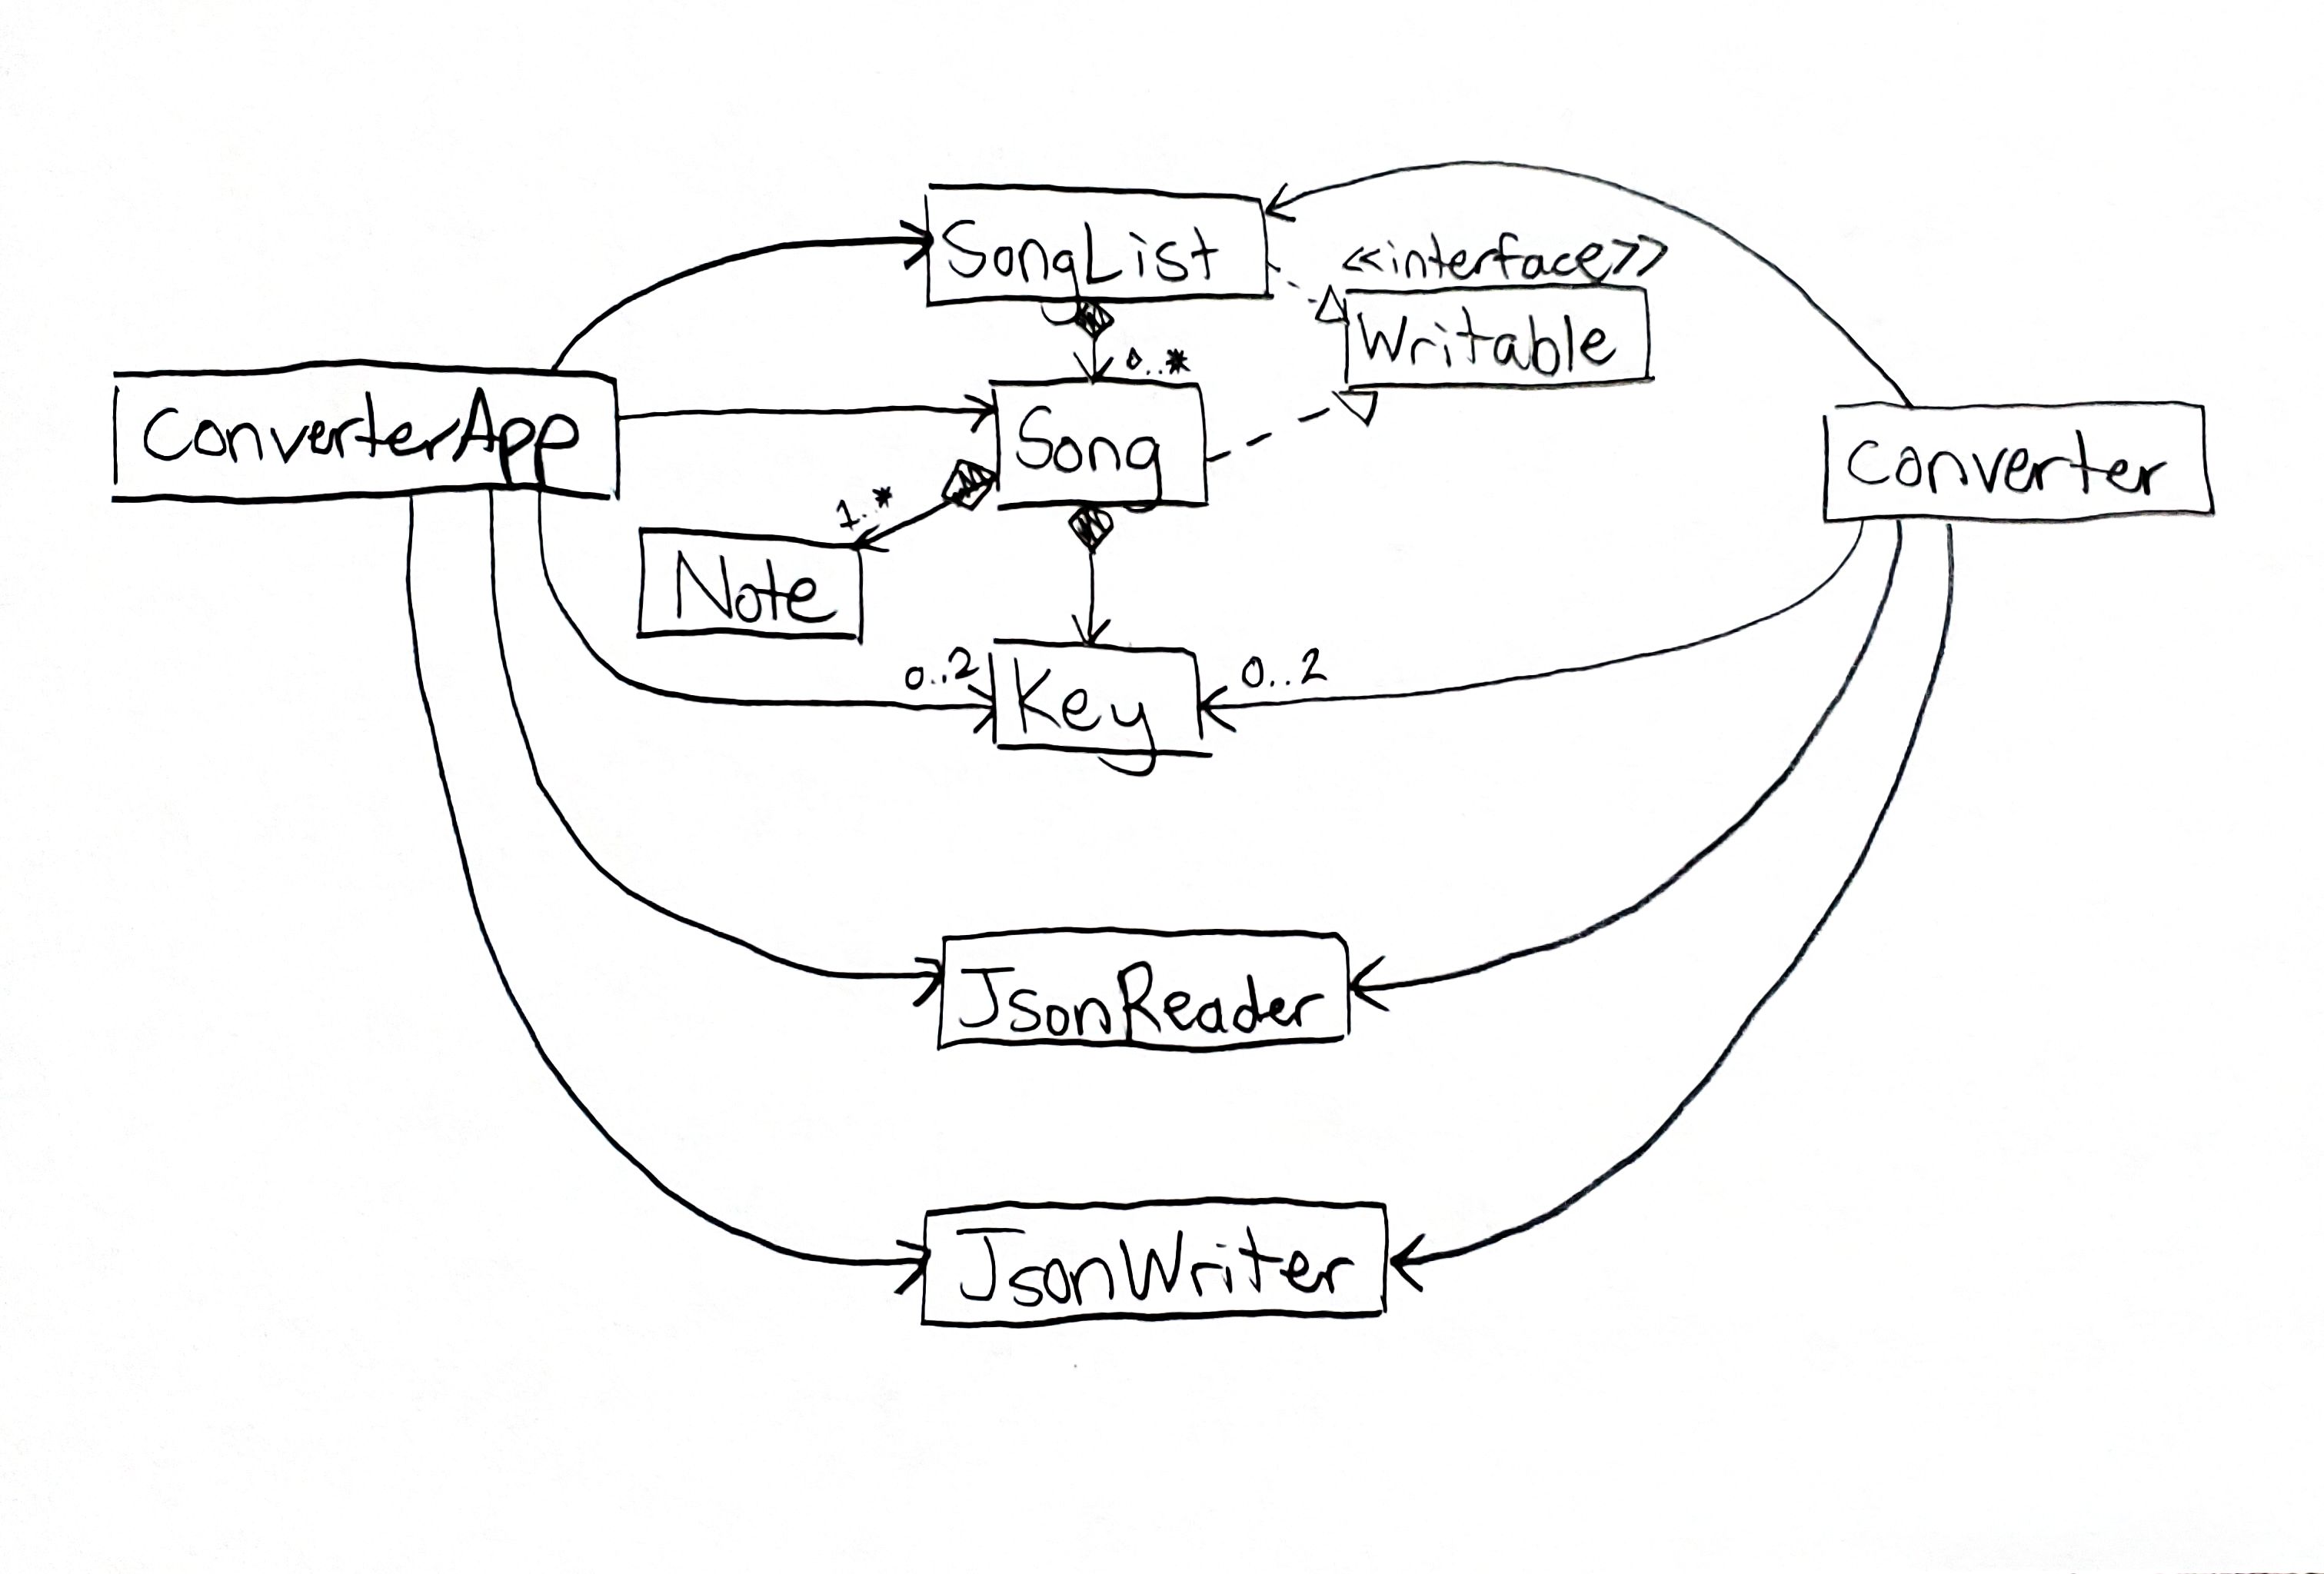 SongList
<<interface>>
Writable
0..*
ConverterApp
Song
Converter
1..*
Note
0..2
Key
0..2
JsonReader
JsonWriter